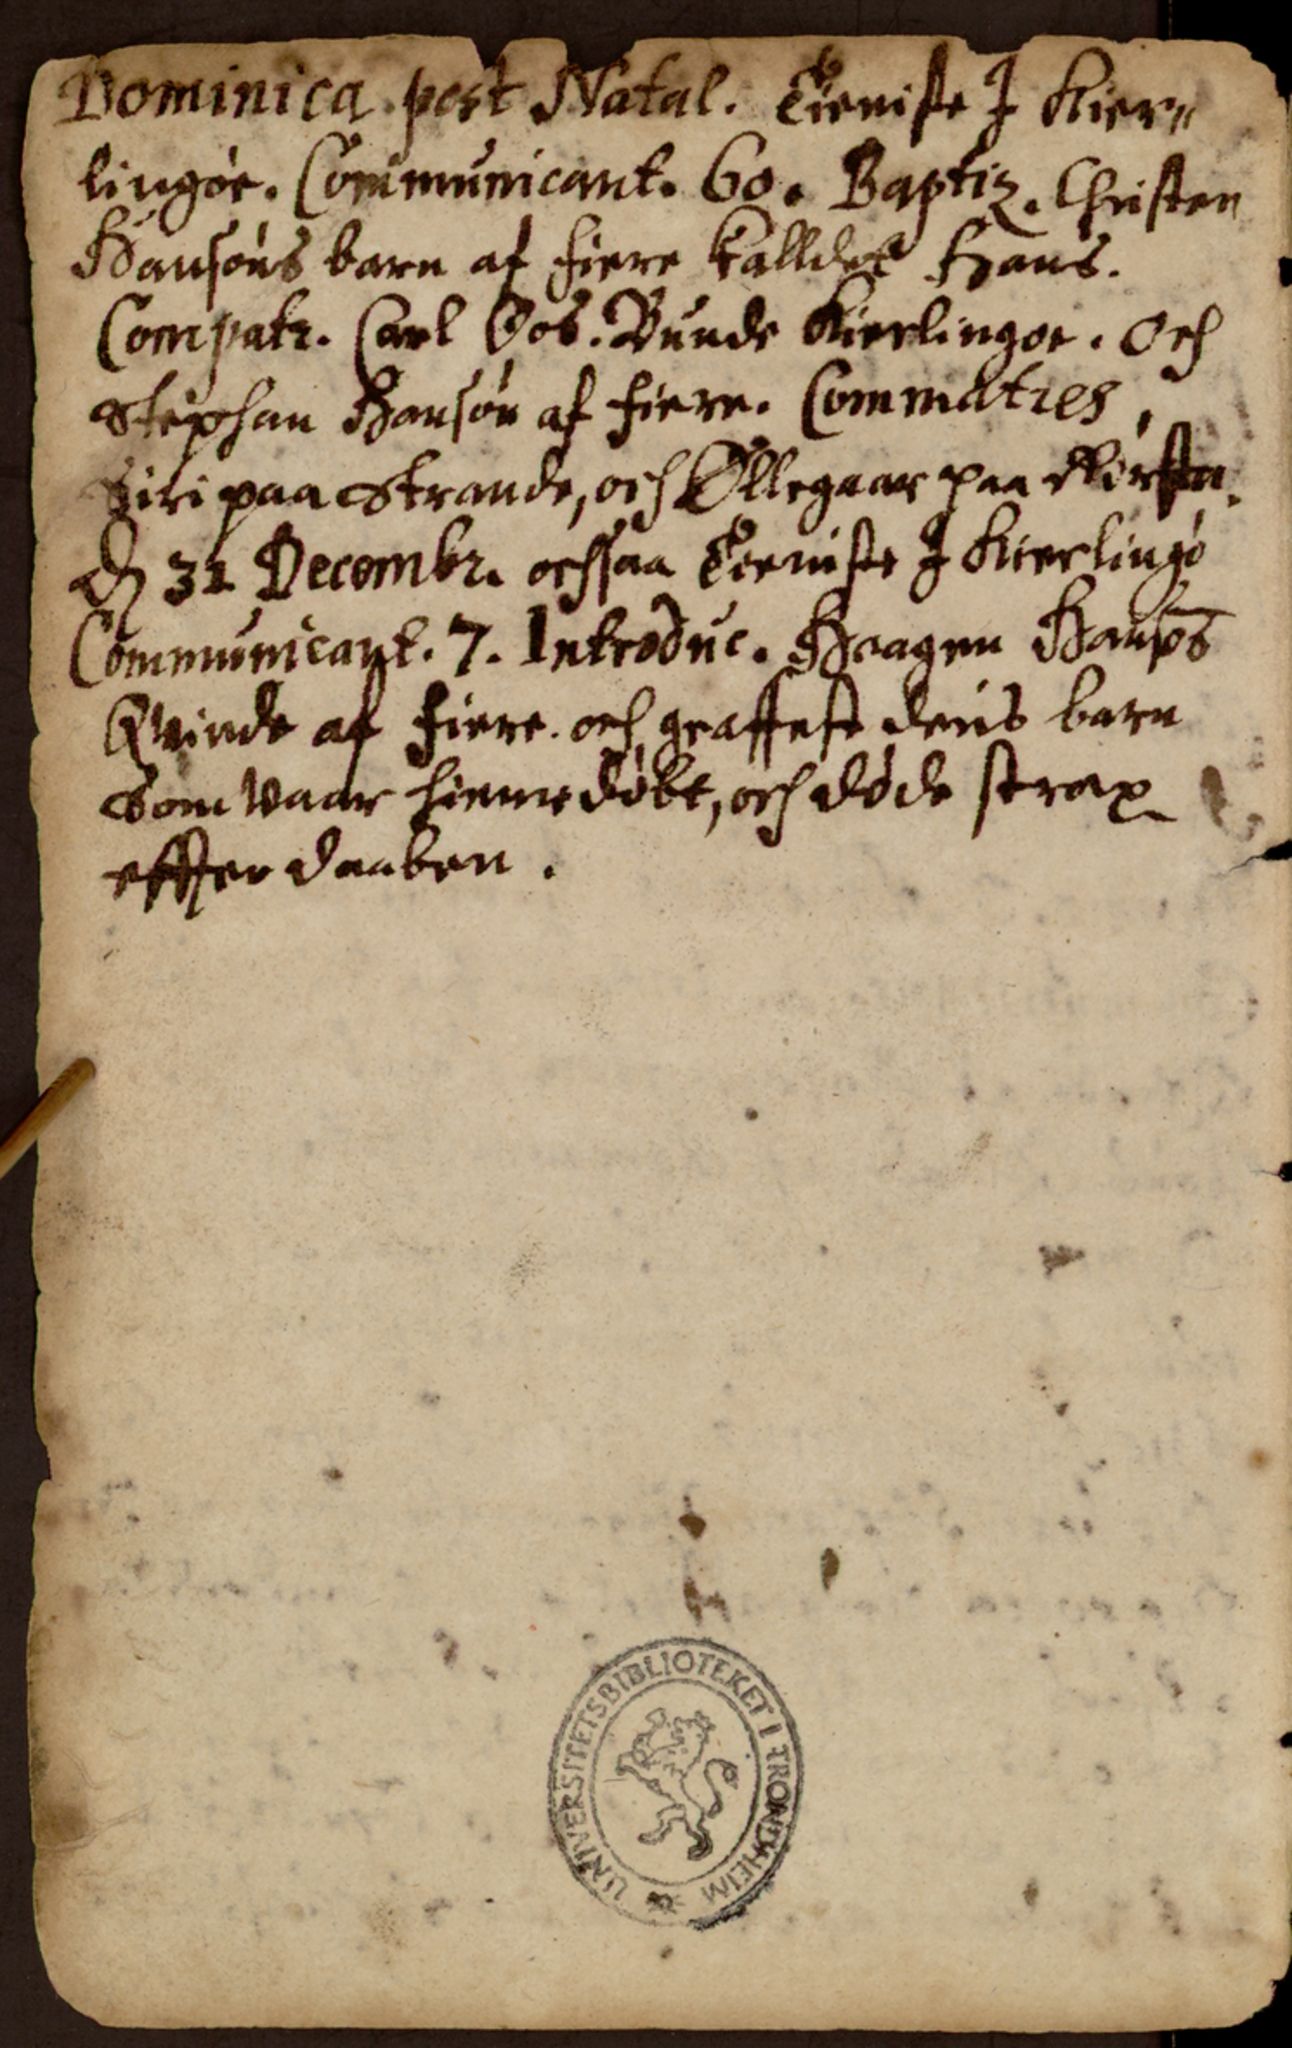 Dominica post Natal. Tieniste J Kier„
lingöe. Communicant. 60. Baptiz. Christen
Hansøns barn af Fiere kalldet Hans.
Compatr. Carl Oos. Bunde Kierlingöe. och
Stephan Hansøn af Fiere. Commatres,
Siri paa Strande, och Ollegaar paa
31 Decembr. ochsaa Tieniste J Kierlingö
Communicant. 7. Introduc. Haagen Hansøs
Qvinde af Fiere. och graffeste deris barn
som vaar hiemedöbt, och døde strax
effter daaben.
UNIVERSITETSBIBLIOTEKET I TRONDHEIM